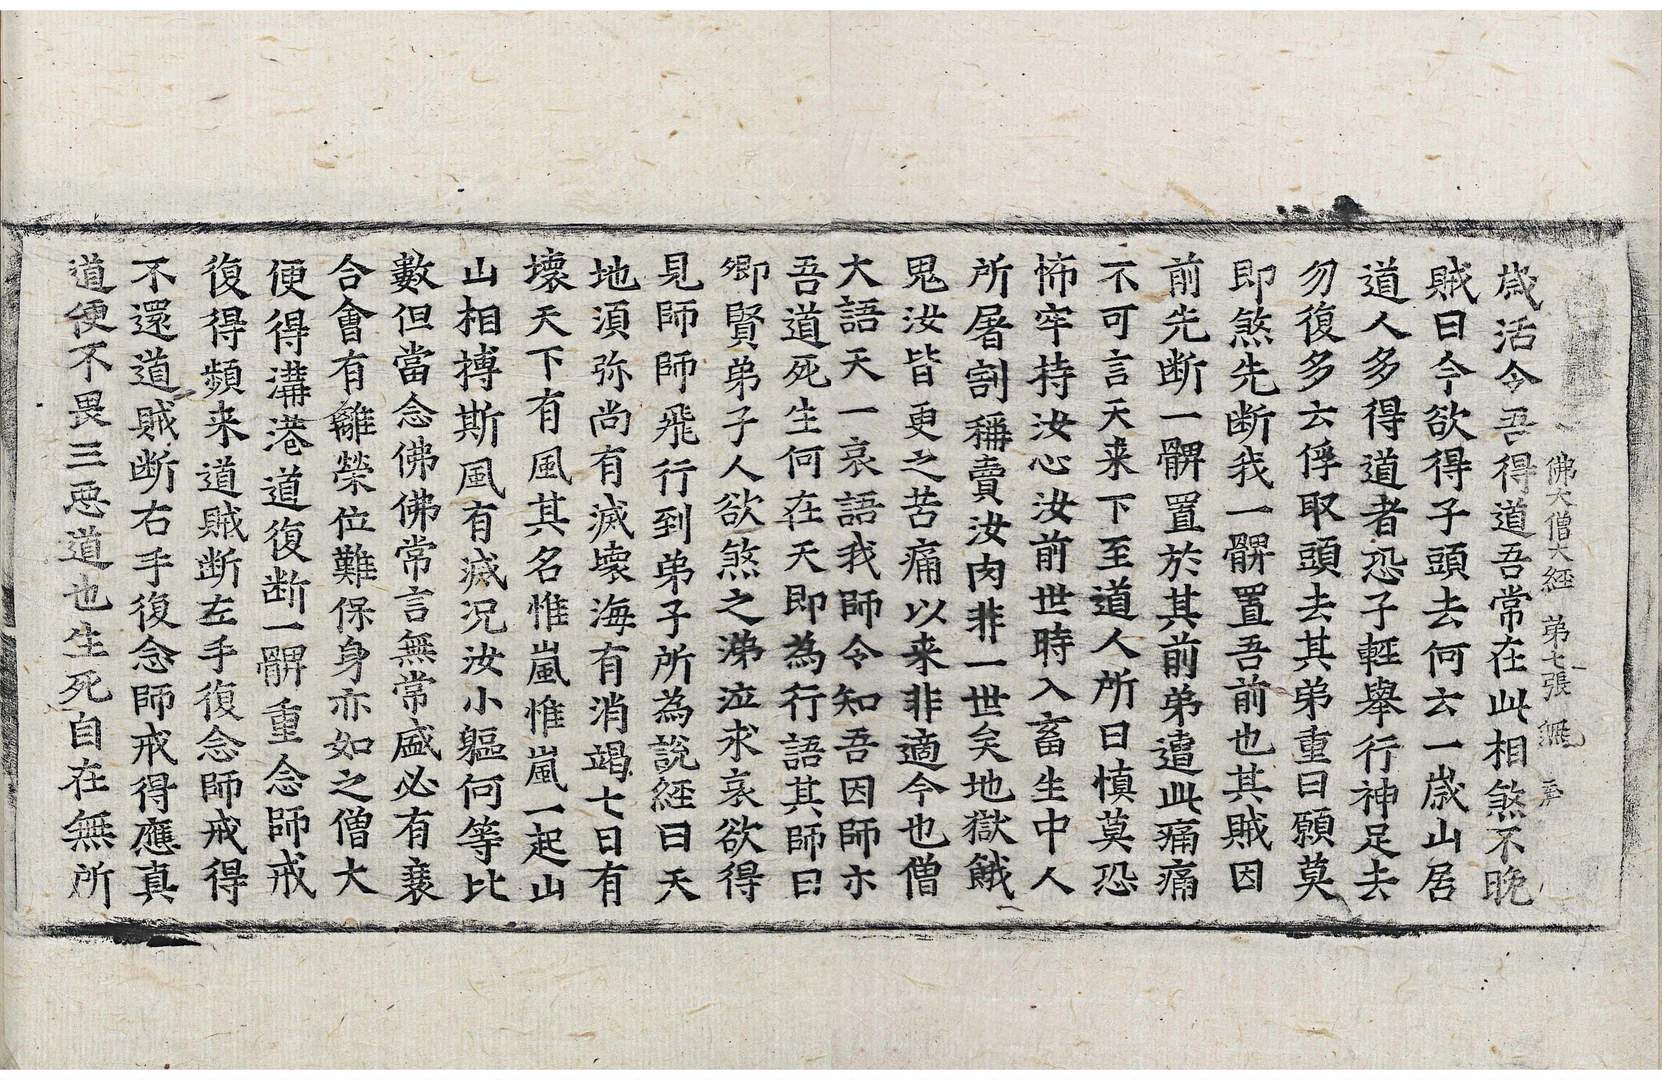 佛大僧大經 第七張 無
歳活今吾得道吾常在此相煞不晚
賊曰今欲得子頭去何云一歳山居
道人多得道者恐子輕舉行神足去
勿復多云俘取頭去其弟重曰願莫
即煞先断我一髀置吾前也其賊因
前先断一髀置於其前弟遭此痛痛
不可言天来下至道人所曰慎莫恐
怖牢持汝心汝前世時入畜生中人
所屠割稱賣汝肉非一世矣地獄餓
鬼汝皆更之苦痛以来非適今也僧
大語天一哀語我師令知吾因師亦
吾道死生何在天即為行語其師曰
卿賢弟子人欲煞之涕泣求哀欲得
見師師飛行到弟子所為說經曰天
地湏弥尚有滅壞海有消竭七日有
壞天下有風其名惟嵐惟嵐一起山
山相搏斯風有滅况汝小軀何等比
數但當念佛佛常言無常盛必有衰
合會有離榮位難保身亦如之僧大
便得溝港道復断一髀重念師戒
復得頻来道賊断左手復念師戒得
不還道賊断右手復念師戒得應真
道便不畏三惡道也生死自在無所